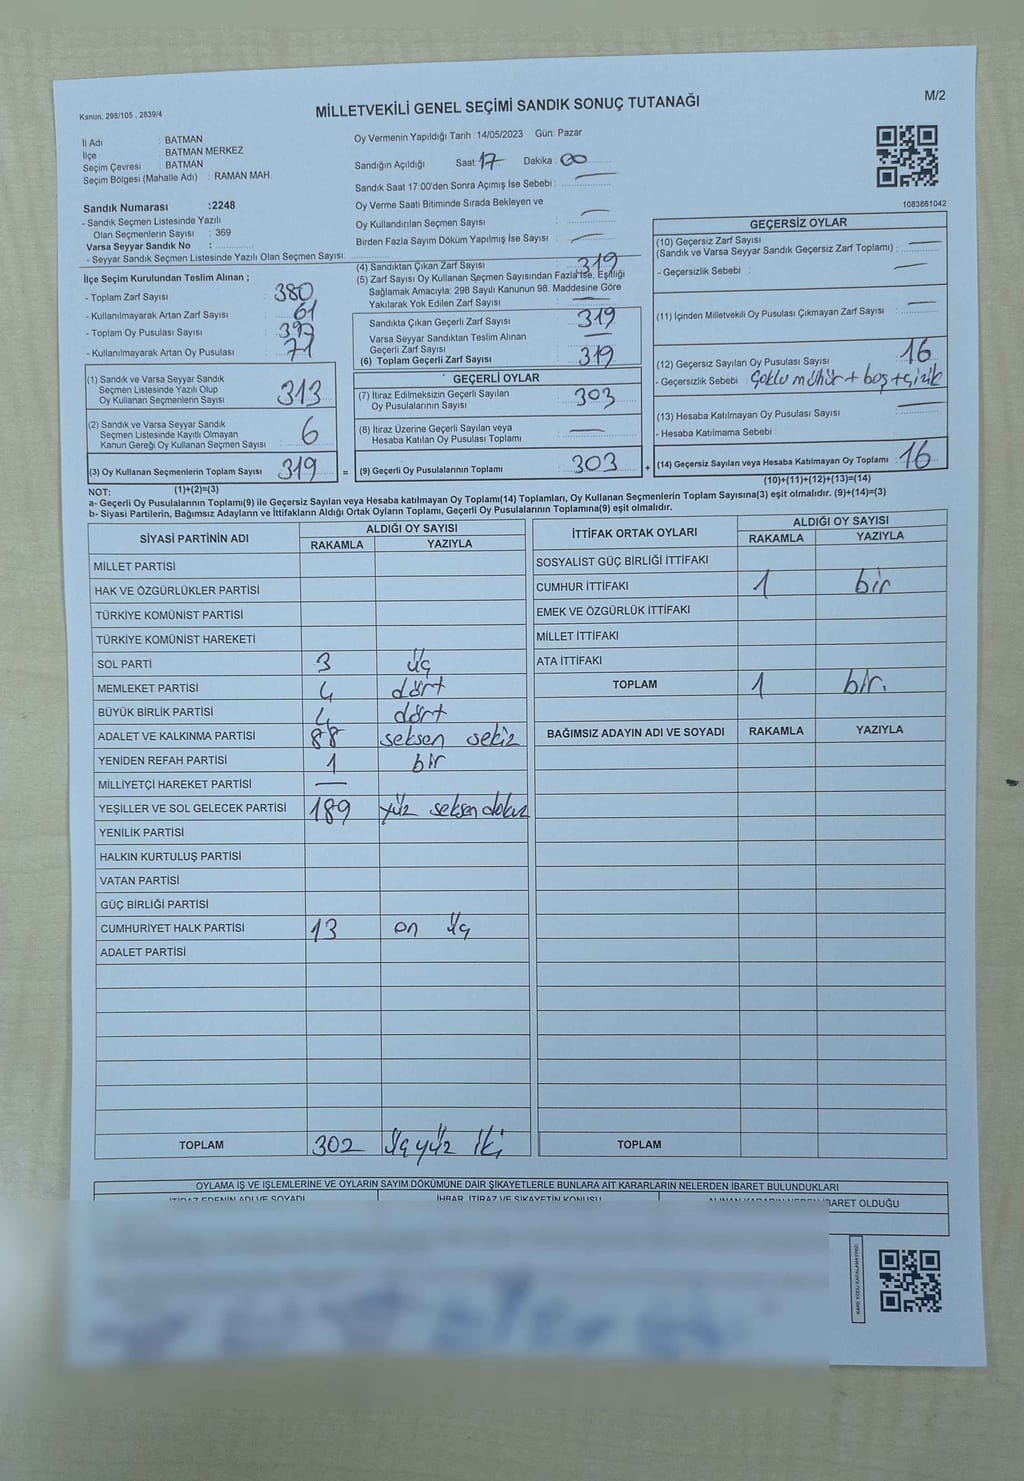 Kanun, 298/105 , 2839/4
MİLLETVEKİLİ GENEL SEÇİMİ SANDIK SONUÇ TUTANAĞI
M/2
İl Adı : BATMAN
İlçe : BATMAN MERKEZ
Seçim Çevresi : BATMAN
Seçim Bölgesi (Mahalle Adı) : RAMAN MAH.
Sandık Numarası :2248
- Sandık Seçmen Listesinde Yazılı
Olan Seçmenlerin Sayısı : 369
Varsa Seyyar Sandık No :
- Seyyar Sandık Seçmen Listesinde Yazılı Olan Seçmen Sayısı:
Oy Vermenin Yapıldığı Tarih : 14/05/2023 Gün: Pazar
Sandığın Açıldığı Saat 17 Dakika : 00
Sandık Saat 17:00'den Sonra Açımış İse Sebebi : —
Oy Verme Saati Bitiminde Sırada Bekleyen ve
Oy Kullandırılan Seçmen Sayısı : —
Birden Fazla Sayım Döküm Yapılmış İse Sayısı : —
1083861042
İlçe Seçim Kurulundan Teslim Alınan ;
- Toplam Zarf Sayısı : 380
- Kullanılmayarak Artan Zarf Sayısı : 61
- Toplam Oy Pusulası Sayısı : 397
- Kullanılmayarak Artan Oy Pusulası : 71
(1) Sandık ve Varsa Seyyar Sandık
Seçmen Listesinde Yazılı Olup
Oy Kullanan Seçmenlerin Sayısı : 313
(2) Sandık ve Varsa Seyyar Sandık
Seçmen Listesinde Kayıtlı Olmayan
Kanun Gereği Oy Kullanan Seçmen Sayısı : 6
(3) Oy Kullanan Seçmenlerin Toplam Sayısı : 319
(1)+(2)=(3)
(4) Sandıktan Çıkan Zarf Sayısı : 319
(5) Zarf Sayısı Oy Kullanan Seçmen Sayısından Fazla İse, Eşitliği
Sağlamak Amacıyla; 298 Sayılı Kanunun 98. Maddesine Göre
Yakılarak Yok Edilen Zarf Sayısı : —
Sandıkta Çıkan Geçerli Zarf Sayısı : 319
Varsa Seyyar Sandıktan Teslim Alınan
Geçerli Zarf Sayısı : —
(6) Toplam Geçerli Zarf Sayısı : 319
GEÇERLİ OYLAR
(7) İtiraz Edilmeksizin Geçerli Sayılan
Oy Pusulalarının Sayısı : 303
(8) İtiraz Üzerine Geçerli Sayılan veya
Hesaba Katılan Oy Pusulası Toplamı : —
= (9) Geçerli Oy Pusulalarının Toplamı : 303
GEÇERSİZ OYLAR
(10) Geçersiz Zarf Sayısı
(Sandık ve Varsa Seyyar Sandık Geçersiz Zarf Toplamı) : —
- Geçersizlik Sebebi : —
(11) İçinden Milletvekili Oy Pusulası Çıkmayan Zarf Sayısı : —
(12) Geçersiz Sayılan Oy Pusulası Sayısı : 16
- Geçersizlik Sebebi : Çoklu mühür + boş + çizik
(13) Hesaba Katılmayan Oy Pusulası Sayısı : —
- Hesaba Katılmama Sebebi :
+ (14) Geçersiz Sayılan veya Hesaba Katılmayan Oy Toplamı : 16
(10)+(11)+(12)+(13)=(14)
NOT:
a- Geçerli Oy Pusulalarının Toplamı(9) ile Geçersiz Sayılan veya Hesaba katılmayan Oy Toplamı(14) Toplamları, Oy Kullanan Seçmenlerin Toplam Sayısına(3) eşit olmalıdır. (9)+(14)=(3)
b- Siyasi Partilerin, Bağımsız Adayların ve İttifakların Aldığı Ortak Oyların Toplamı, Geçerli Oy Pusulalarının Toplamına(9) eşit olmalıdır.
SİYASİ PARTİNİN ADI ALDIĞI OY SAYISI
RAKAMLA YAZIYLA
MİLLET PARTİSİ
HAK VE ÖZGÜRLÜKLER PARTİSİ
TÜRKİYE KOMÜNİST PARTİSİ
TÜRKİYE KOMÜNİST HAREKETİ
SOL PARTİ 3 üç
MEMLEKET PARTİSİ 4 dört
BÜYÜK BİRLİK PARTİSİ 4 dört
ADALET VE KALKINMA PARTİSİ 88 seksen sekiz
YENİDEN REFAH PARTİSİ 1 bir
MİLLİYETÇİ HAREKET PARTİSİ —
YEŞİLLER VE SOL GELECEK PARTİSİ 189 yüz seksen dokuz
YENİLİK PARTİSİ
HALKIN KURTULUŞ PARTİSİ
VATAN PARTİSİ
GÜÇ BİRLİĞİ PARTİSİ
CUMHURİYET HALK PARTİSİ 13 on üç
ADALET PARTİSİ
TOPLAM 302 üç yüz iki
İTTİFAK ORTAK OYLARI ALDIĞI OY SAYISI
RAKAMLA YAZIYLA
SOSYALİST GÜÇ BİRLİĞİ İTTİFAKI
CUMHUR İTTİFAKI 1 bir
EMEK VE ÖZGÜRLÜK İTTİFAKI
MİLLET İTTİFAKI
ATA İTTİFAKI
TOPLAM 1 bir.
BAĞIMSIZ ADAYIN ADI VE SOYADI RAKAMLA YAZIYLA
TOPLAM
OYLAMA İŞ VE İŞLEMLERİNE VE OYLARIN SAYIM DÖKÜMÜNE DAİR ŞİKAYETLERLE BUNLARA AİT KARARLARIN NELERDEN İBARET BULUNDUKLARI
İTİRAZ EDENİN ADI VE SOYADI İHBAR, İTİRAZ VE ŞİKAYETİN KONUSU ALINAN KARARIN NEDEN İBARET OLDUĞU
KARE KODU KARALAMAYINIZ!